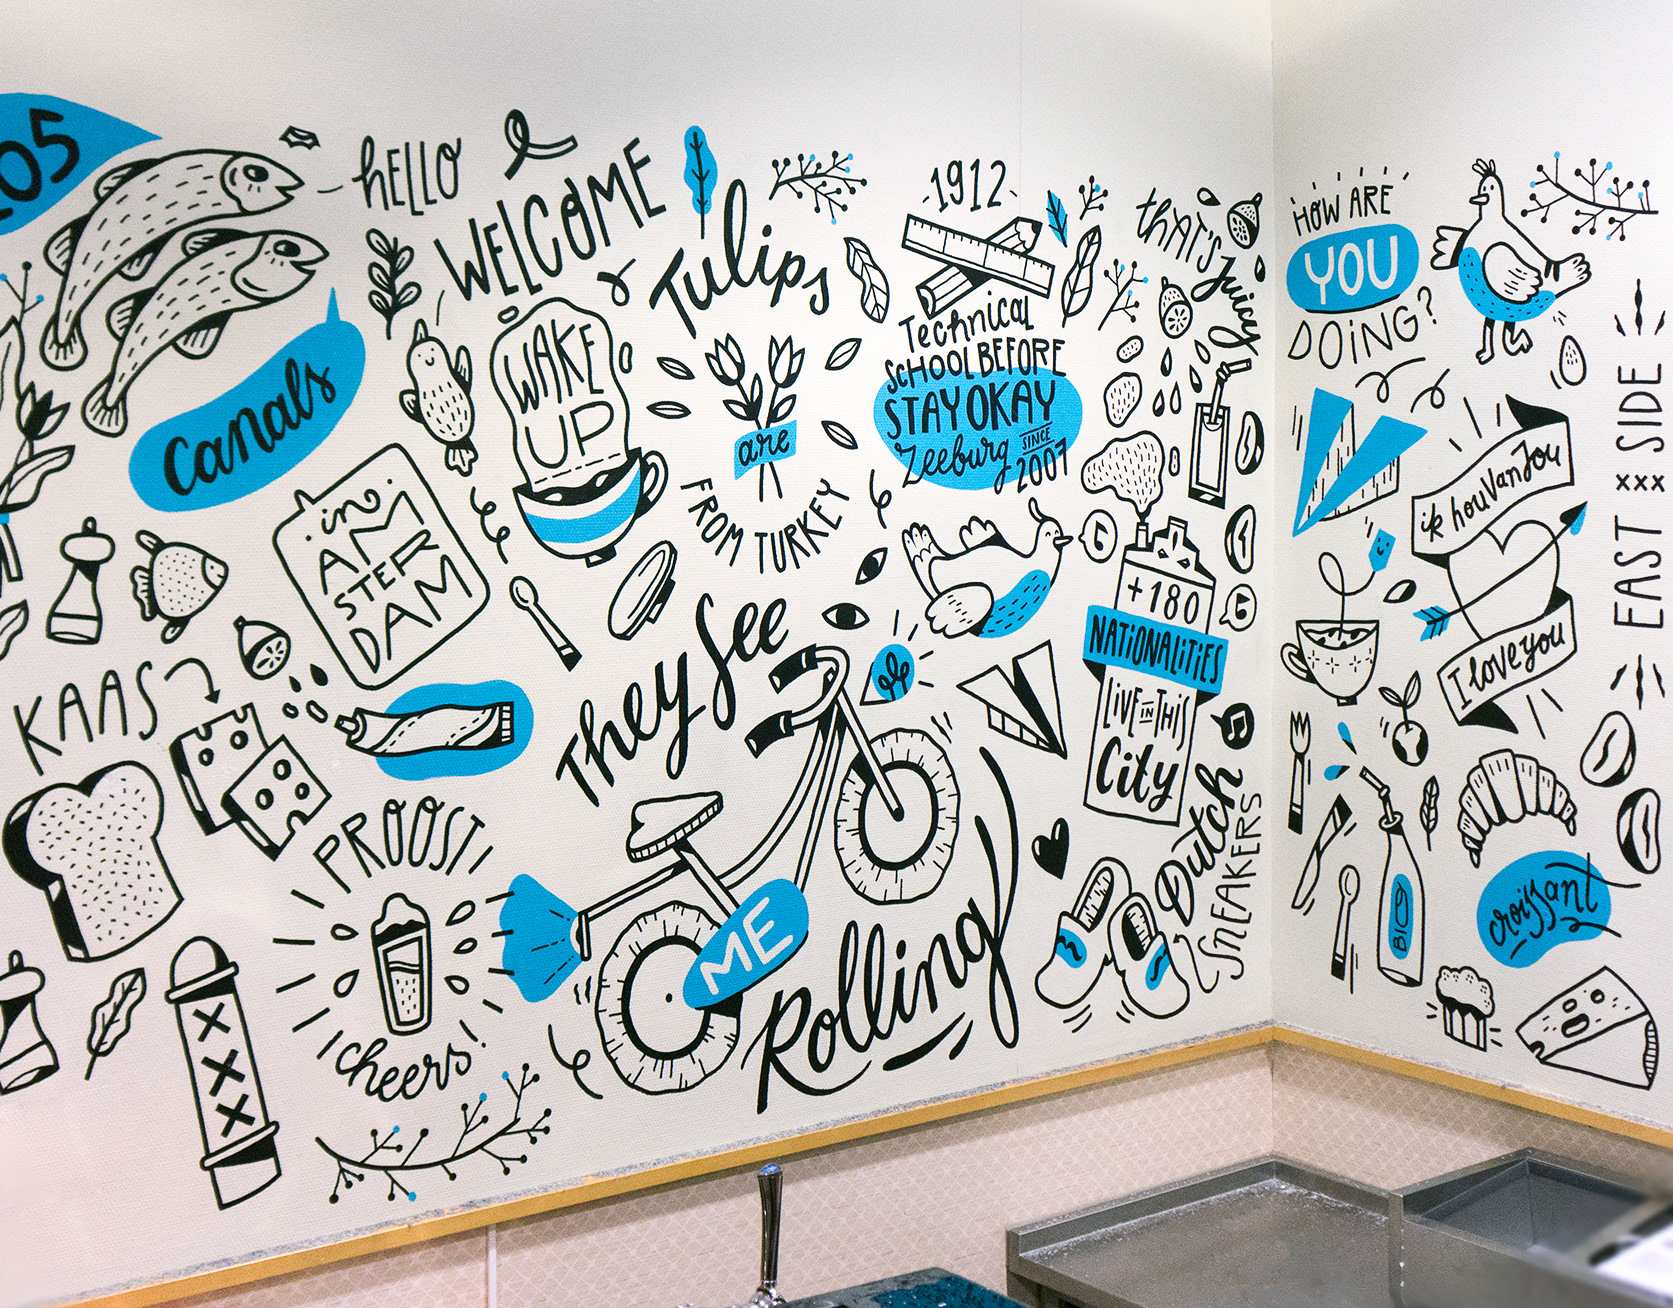 05
Canals
in
AM
STER
DAM
HELLO
WELCOME
WAKE
UP
Tulips
are
FROM TURKEY
1912
Technical
SCHOOL BEFORE
STAYOKAY
Zeeburg SINCE
2007
THAT'S
Juicy
+180
NATIONALITIES
LIVE IN THIS
City
KAAS
PROOST!
cheers!
XXX
They See
ME
Rolling
Dutch
SNEAKERS
HOW ARE
YOU
DOING?
ik hou Van Jou
I love you
EAST XXX SIDE
BIO
croissant